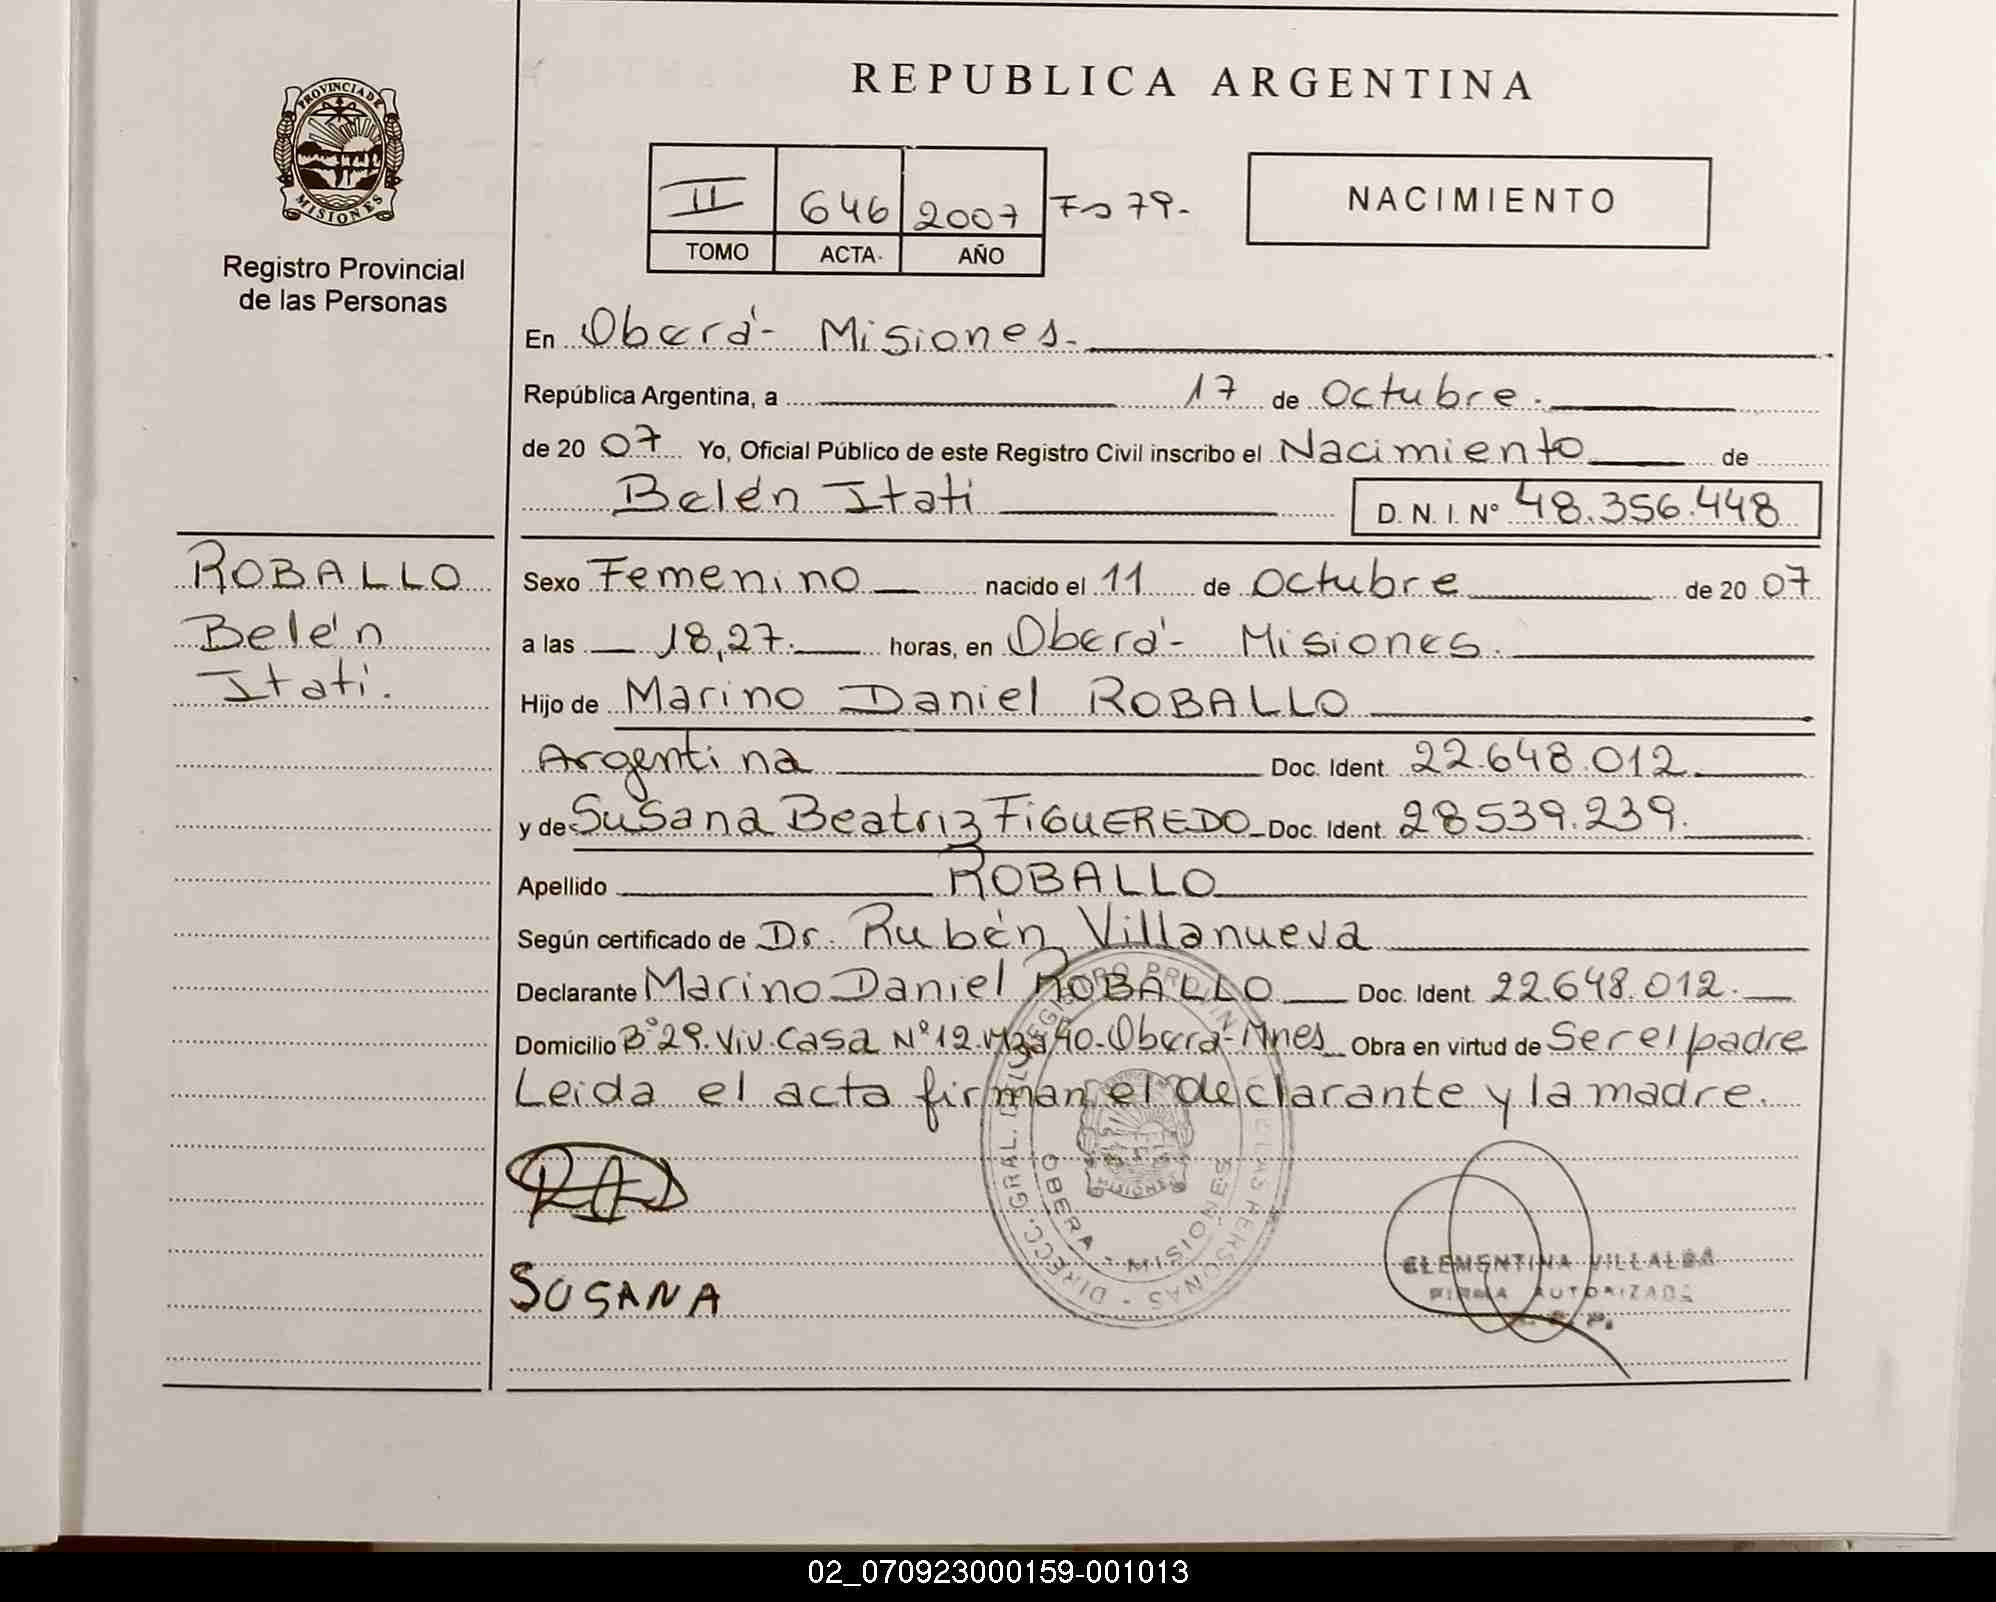 REPUBLICA ARGENTINA
PROVINCIA DE MISIONES
Registro Provincial
de las Personas
II 646 2007 Fs 79.-
TOMO ACTA AÑO
NACIMIENTO
En Oberá - Misiones.-
República Argentina, a 17 de Octubre.
de 20 07 Yo, Oficial Público de este Registro Civil inscribo el Nacimiento de
Belén Itati D. N. I. N° 48.356.448
ROBALLO
Belén
Itati.
Sexo Femenino nacido el 11 de Octubre de 20 07
a las 18,27. horas, en Oberá - Misiones.
Hijo de Marino Daniel ROBALLO
Argentina Doc. Ident. 22.648.012.
y de Susana Beatriz FiGUEREDO Doc. Ident. 28539.239.
Apellido ROBALLO
Según certificado de Dr. Rubén Villanueva
Declarante Marino Daniel ROBALLO Doc. Ident. 22.648.012.
Domicilio B° 29. Viv. Casa N° 12. Mza 40. Oberá - Mnes Obra en virtud de Ser el padre
Leida el acta firman el declarante y la madre.
DIRECC. GRAL. DEL REGISTRO PROVIN DE LAS PERSONAS
OBERA - MISIONES
SUSANA
CLEMENTINA VILLALBA
FIRMA AUTORIZADA
02_070923000159-001013